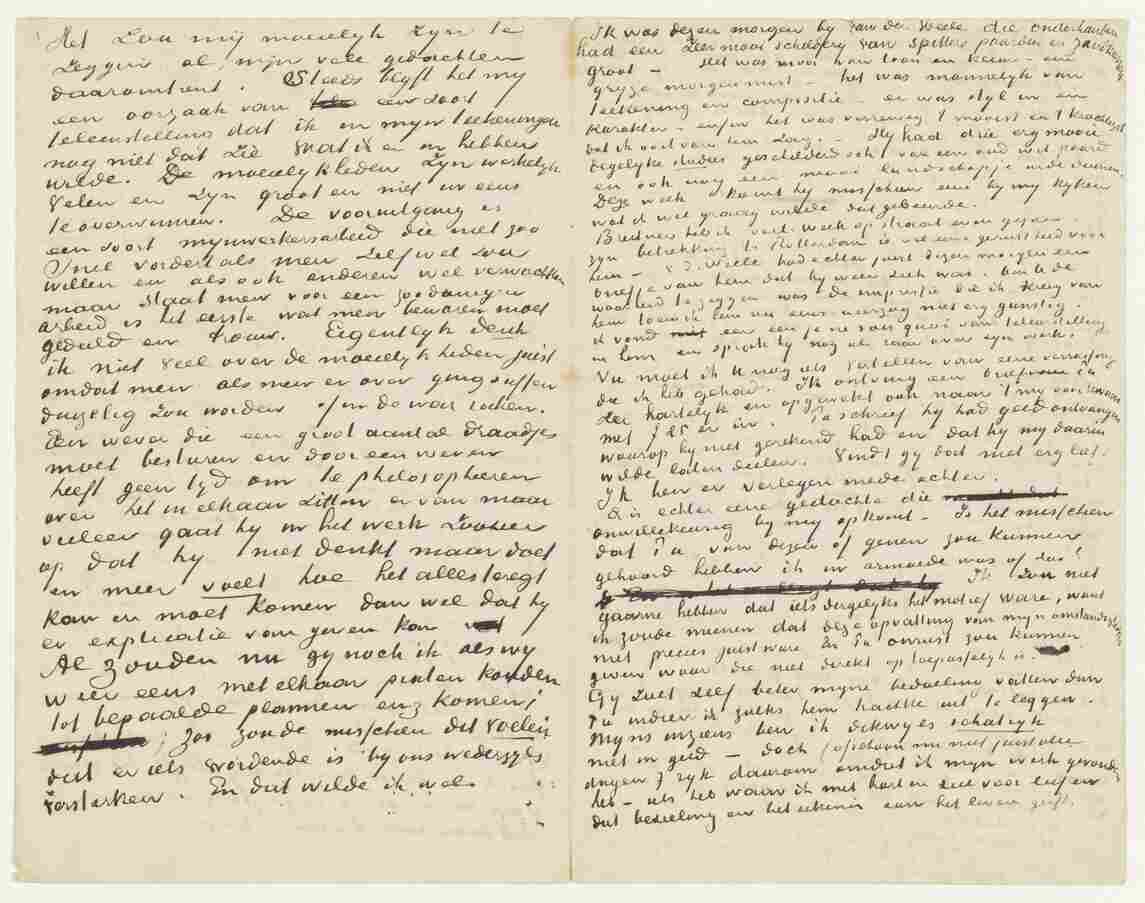 Het zou mij moeielyk zyn te
zeggen al mijn vele gedachten
daaromtrent. Steeds blyft het my
een oorzaak van een soort
teleurstelling dat ik in myn teekeningen
nog niet dat zie wat ik er in hebben
wilde. De moeielykheden zyn werkelyk
velen en zyn groot en niet in eens
te overwinnen. De vooruitgang is
een soort mynwerkersarbeid die niet zoo
snel vordert als men zelf wel zou
willen en als ook anderen wel verwachten
maar staat men voor een zoodanigen
arbeid is het eerste wat men bewaren moet
geduld en trouw. Eigentlyk denk
ik niet veel over de moeielykheden juist
omdat men als men er over ging suffen
duizelig zou worden of in de war raken.
Een wever die een groot aantal draadjes
moet besturen en dooreen weven
heeft geen tyd om te philosopheeren
over het in elkaar zitten er van maar
veeleer gaat hy in het werk zoozeer
op dat hy niet denkt maar doet
en meer voelt hoe het alles teregt
kan en moet komen dan wel dat hy
er explicatie van geven kan
Al zouden nu gy noch ik als wy
weer eens met elkaar praten konden
tot bepaalde plannen enz komen;
; zoo zoude misschien dit voelen
dat er iets wordende is by ons wederzyds
versterken. En dat wilde ik wel.
Ik was dezen morgen by van der Weele die onderhanden
had een zeer mooi schildery van spitters paarden en zandkarren
groot – Het was mooi van toon en kleur – een
gryze morgenmist – het was mannelyk van
teekening en compositie – er was styl in en
karakter – enfin het was verreweg 't mooist en 't krachtigst
dat ik ooit van hem zag. – Hy had drie erg mooie
degelyke studies geschilderd ook van een oud wit paard
en ook nog een mooi landschapje in de duinen.
Deze week komt hy misschien eens by my kyken
wat ik wel graag wilde dat gebeurde.
Breitner heb ik verl. week op straat even gezien.
zyn betrekking te Rotterdam is wel eene gerustheid voor
hem – v.d. Weele had echter juist dezen morgen een
briefje van hem dat hy weer ziek was. Om u de
waarheid te zeggen was de impressie die ik kreeg van
hem toen ik hem nu eens weerzag niet erg gunstig.
ik vond er een je ne sais quoi van teleurstelling
in hem en sprak hy nog al raar over zyn werk.
Nu moet ik u nog iets vertellen van eene verrassing
die ik heb gehad. Ik ontving een brief van Pa
zeer hartelyk en opgewekt ook naar 't my voorkwam
met f 25 er in. Pa schreef hy had geld ontvangen
waarop hy niet gerekend had en dat hy my daarin
wilde laten deelen. Vindt gy dat niet erg lief.
Ik ben er verlegen mede echter.
Er is echter eene gedachte die
onwillekeurig by my opkomt – Is het misschien
dat Pa van dezen of genen zou kunnen
gehoord hebben ik in armoede was of dus!
Ik zou niet
gaarne hebben dat iets dergelyks het motief ware, want
ik zoude meenen dat deze opvatting van myn omstandigheden
niet precies juist ware En Pa onrust zou kunnen
geven waar die niet direkt op toepasselyk is.
Gy zult zelf beter myne bedoeling vatten dan
Pa indien ik zulks hem trachtte uit te leggen.
Myns inziens ben ik dikwyls schatryk
niet in geld – doch (ofschoon nu niet juist alle
dagen) ryk daarom omdat ik myn werk gevonden
heb – iets heb waar ik met hart en ziel voor leef en
dat bezieling en beteekenis aan het leven geeft.